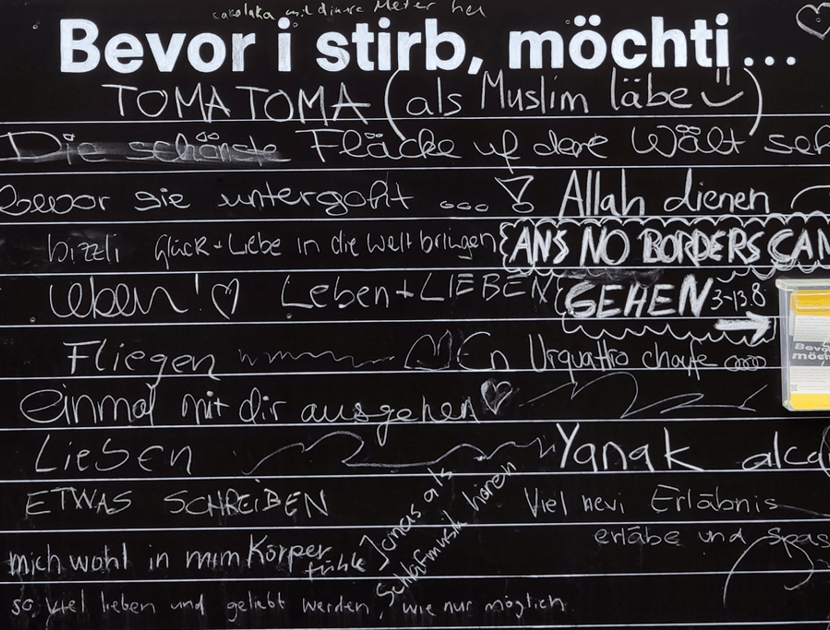 mit dinere Meter her
Bevor i stirb, möchti...
TOMATOMA (als Muslim läbe)
Die schönste Fläcke uf dere Wält seh
bevor sie untergoht ... ! Allah dienen
bizzli Glück + Liebe in die Welt bringen ANS NO BORDERS CAM
leben! Leben + LIEBEN GEHEN 3-13.8
Fliegen En Urquattro chaufe
einmal mit dir ausgehen
Lieben Yanak
ETWAS SCHREIBEN Viel nevi Erläbnis
erläbe und Spas
Jonas als
Schlafmusik hören
mich wohl in mim Körper fühle
so viel lieben und geliebt werden, wie nur möglich.
Bevor
möch